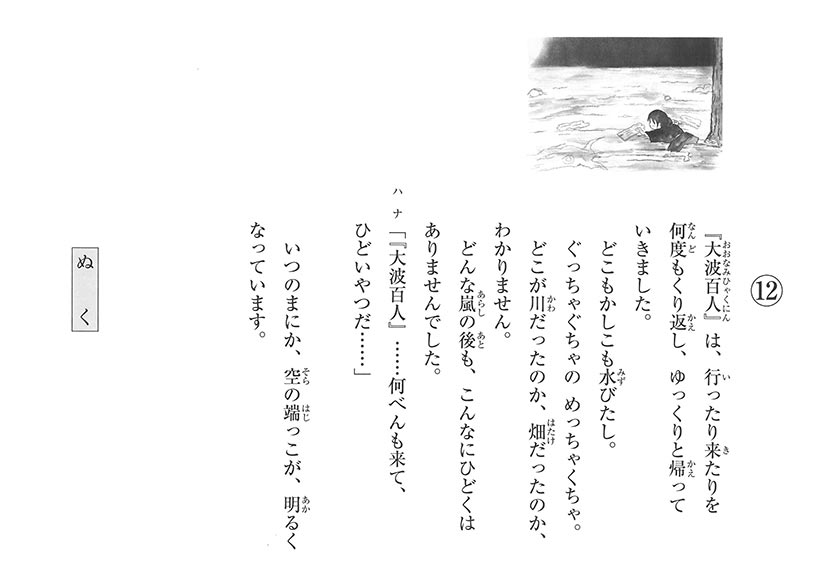 ⑫
『大波百人』は、行ったり来たりを
何度もくり返し、ゆっくりと帰って
いきました。
どこもかしこも水びたし。
ぐっちゃぐちゃの めっちゃくちゃ。
どこが川だったのか、畑だったのか、
わかりません。
どんな嵐の後も、こんなにひどくは
ありませんでした。
ハナ「『大波百人』……何べんも来て、
ひどいやつだ……」
いつのまにか、空の端っこが、明るく
なっています。
ぬく